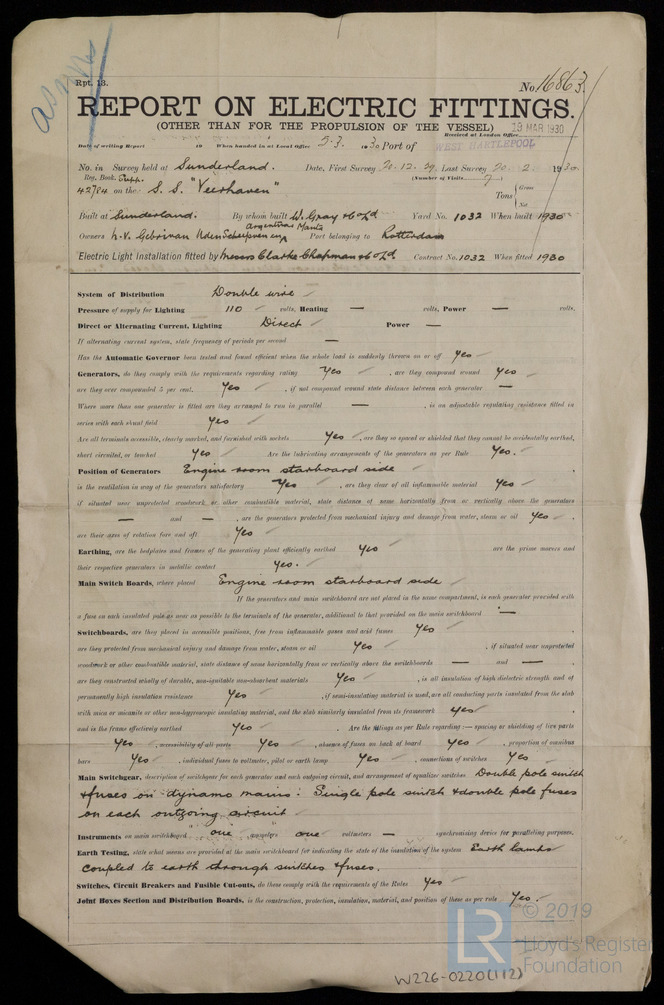 Rpt. 13.
No. 16863
REPORT ON ELECTRIC FITTINGS.
(OTHER THAN FOR THE PROPULSION OF THE VESSEL)
19 MAR 1930
Received at London Office
Date of writing Report 19 When handed in at Local Office 5-3. 1930 Port of WEST HARTLEPOOL
No. in Survey held at Sunderland. Date, First Survey 20.12.29 Last Survey 20.2. 1930
Reg. Book. Supp. (Number of Visits 7)
42784 on the S.S. "Veerhaven" Tons { Gross Net
Built at Sunderland. By whom built W. Gray & Co Ld Yard No. 1032 When built 1930
Owners N.V. Port belonging to Rotterdam
Electric Light Installation fitted by Messrs Clarke Chapman & Co Ld Contract No. 1032 When fitted 1930
System of Distribution Double wire
Pressure of supply for Lighting 110 volts, Heating — volts, Power — volts.
Direct or Alternating Current, Lighting Direct Power —
If alternating current system, state frequency of periods per second —
Has the Automatic Governor been tested and found efficient when the whole load is suddenly thrown on or off Yes
Generators, do they comply with the requirements regarding rating Yes, are they compound wound Yes
are they over compounded 5 per cent. Yes, if not compound wound state distance between each generator —
Where more than one generator is fitted are they arranged to run in parallel —, is an adjustable regulating resistance fitted in
series with each shunt field Yes
Are all terminals accessible, clearly marked, and furnished with sockets Yes, are they so spaced or shielded that they cannot be accidentally earthed,
short circuited, or touched Yes Are the lubricating arrangements of the generators as per Rule Yes.
Position of Generators Engine room starboard side
is the ventilation in way of the generators satisfactory Yes, are they clear of all inflammable material Yes
if situated near unprotected woodwork or other combustible material, state distance of same horizontally from or vertically above the generators
— and —, are the generators protected from mechanical injury and damage from water, steam or oil Yes,
are their axes of rotation fore and aft Yes
Earthing, are the bedplates and frames of the generating plant efficiently earthed Yes are the prime movers and
their respective generators in metallic contact Yes.
Main Switch Boards, where placed Engine room starboard side
If the generators and main switchboard are not placed in the same compartment, is each generator provided with
a fuse on each insulated pole as near as possible to the terminals of the generator, additional to that provided on the main switchboard —
Switchboards, are they placed in accessible positions, free from inflammable gases and acid fumes Yes,
are they protected from mechanical injury and damage from water, steam or oil Yes, if situated near unprotected
woodwork or other combustible material, state distance of same horizontally from or vertically above the switchboards — and —,
are they constructed wholly of durable, non-ignitable non-absorbent materials Yes, is all insulation of high dielectric strength and of
permanently high insulation resistance Yes, if semi-insulating material is used, are all conducting parts insulated from the slab
with mica or micanite or other non-hygroscopic insulating material, and the slab similarly insulated from its framework Yes,
and is the frame effectively earthed Yes. Are the fittings as per Rule regarding:— spacing or shielding of live parts
Yes, accessibility of all parts Yes, absence of fuses on back of board Yes, proportion of omnibus
bars Yes, individual fuses to voltmeter, pilot or earth lamp Yes, connections of switches Yes
Main Switchgear, description of switchgear for each generator and each outgoing circuit, and arrangement of equalizer switches Double pole switch
& fuses on dynamo mains: Single pole switch & double pole fuses
on each outgoing circuit
Instruments on main switchboard one ammeters one voltmeters — synchronising device for paralleling purposes.
Earth Testing, state what means are provided at the main switchboard for indicating the state of the insulation of the system Earth lamps
coupled to earth through switches & fuses.
Switches, Circuit Breakers and Fusible Cut-outs, do these comply with the requirements of the Rules Yes
Joint Boxes Section and Distribution Boards, is the construction, protection, insulation, material, and position of these as per rule Yes.
LR © 2019
Lloyd's Register
Foundation
W226-0220(1/2)